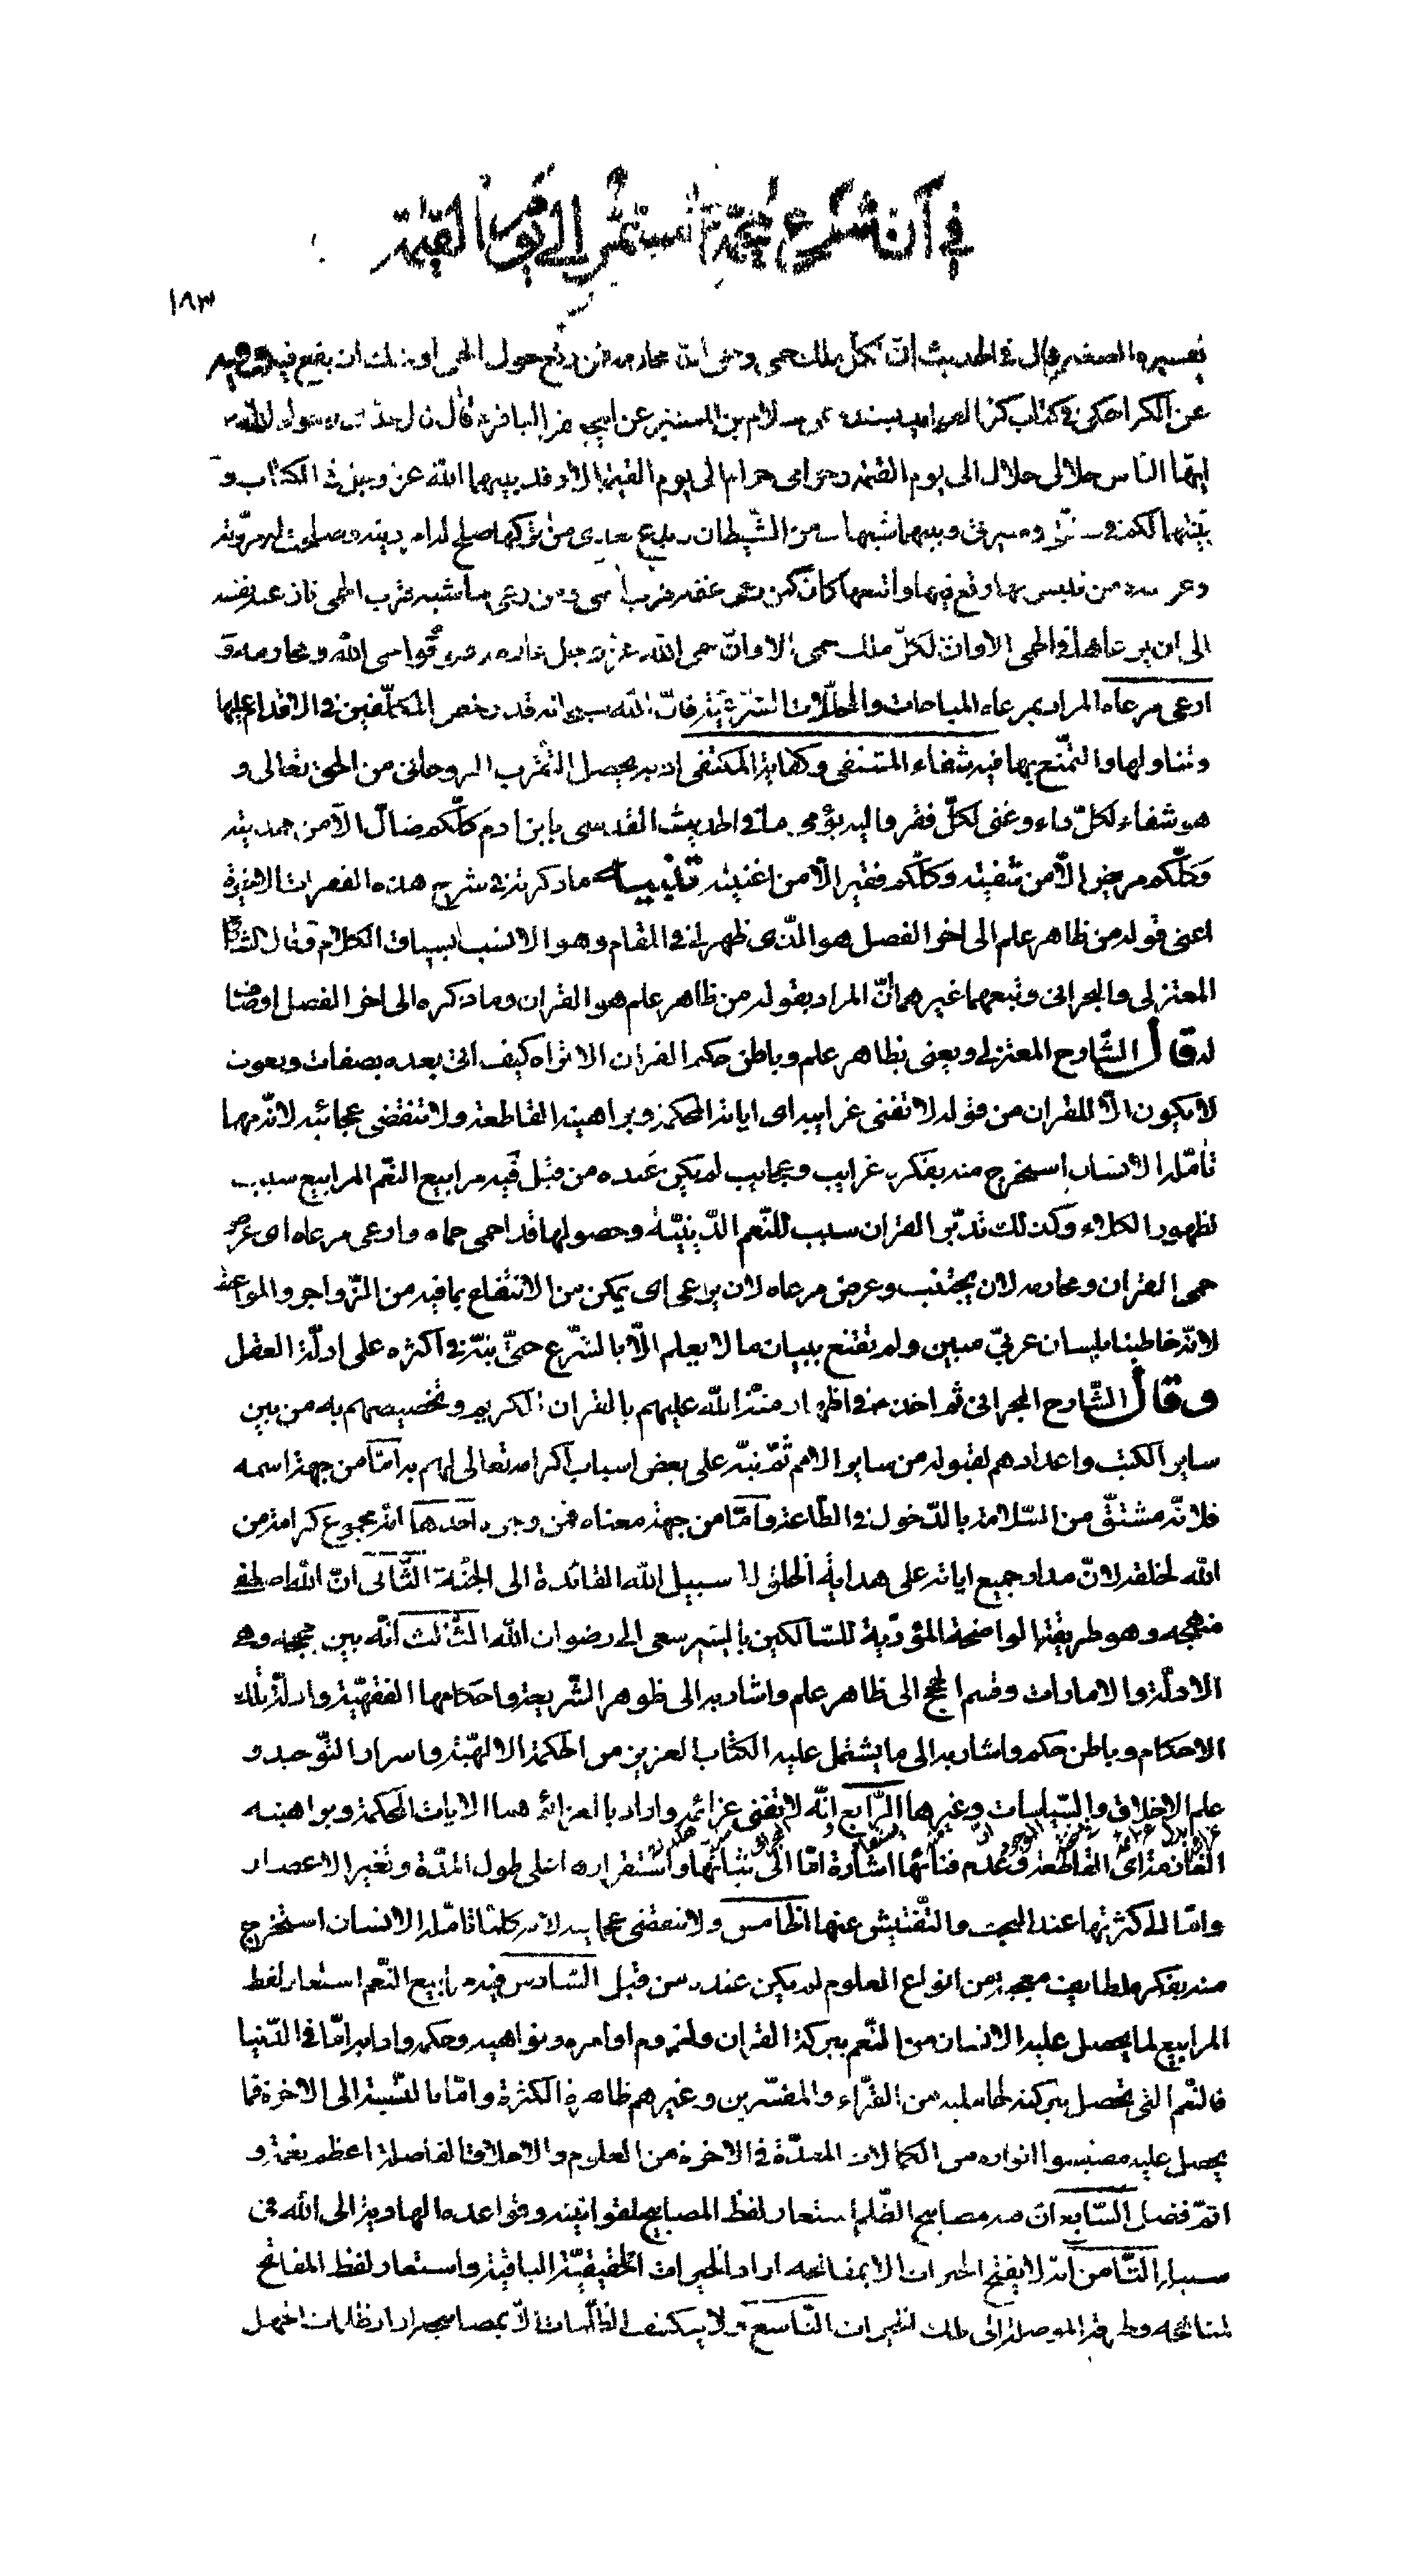 في أن شرع محمد مستمر إلى يوم القيمة
١٨٣
تفسيره الصغير قال في الحديث إن لكل ملك حمى وحمى الله محارمه فمن رتع حول الحمى اوشك ان يقع فيه
عن الكراجكي في كتاب كنز الفوايد بسنده عن سلام بن المستنير عن ابي جعفر الباقر قال قال جدي رسول الله
ايها الناس حلالي حلال الى يوم القيمة وحرامي حرام الى يوم القيمة الا وقد بينهما الله عز وجل في الكتاب و
بينتهما لكم في سنتي وسيرتي وبينهما شبهات من الشيطان وبدع بعدي من تركها صلح له امر دينه وصلحت له مروته
وعرضه ومن تلبس بها وقع فيها واتبعها كان كمن رعى غنمه قرب الحمى ومن رعى ماشيته قرب الحمى نازعته نفسه
الى ان يرعاها في الحمى الا وان لكل ملك حمى الا وان حمى الله عز وجل محارمه فتوقوا حمى الله ومحارمه و
ارعى مرعاه المراد بمرعاه المباحات والمحللات الشرعية فان الله سبحانه قد رخص المكلفين في الاقدام عليها
وتناولها والتمتع بها فيه شفاء المشتفى وكفاية المكتفى اذ به يحصل التقرب الروحاني من الحق تعالى و
هو شفاء لكل داء وغنى لكل فقر واليه يؤمى ما في الحديث القدسي يا بن ادم كلكم ضال الا من هديته
وكلكم مريض الا من شفيته وكلكم فقير الا من اغنيته تنبيه ما ذكرته في شرح هذه الفقرات الاخيرة
اعني قوله من ظاهر علم الى اخر الفصل هو الذي ظهر لي في المقام وهو الانسب بسياق الكلام وقال الشارح
المعتزلي والبحراني وتبعهما غيرهما ان المراد بقوله من ظاهر علم هو القران وما ذكره الى اخر الفصل اوصاف
له قال الشارح المعتزلي ويعني بظاهر علم وباطن حكم القران الا تراه كيف اتى بعده بصفات ونعوت
لا يكون الا للقران من قوله لا تفنى غرايبه اى اياته المحكمة وبراهينه القاطعة ولا تنقضي عجائبه لانه مهما
تأمله الانسان استخرج منه بفكره غرايب وعجايب لم يكن عنده من قبل فيه مرابيع النعم المرابيع سبب
لظهور الكلاء وكذلك تدبر القران سبب للنعم الدينية وحصولها قد احمى حماه وارعى مرعاه اى عرض
حمى القران ومحارمه لان يجتنب وعرض مرعاه لان يرعى اى يمكن من الانتفاع بما فيه من الزواجر والمواعظ
لانه خاطبنا بلسان عربي مبين ولم يقتنع ببيان ما لا يعلم الا بالشرع حتى نبه في اكثره على ادلة العقل
وقال الشارح البحراني ثم اخذ في اظهار منة الله عليهم بالقران الكريم وتخصيصهم به من بين
ساير الكتب واعدادهم لقبوله من ساير الامم ثم نبه على بعض اسباب اكرامه تعالى لهم به اما من جهة اسمه
فلانه مشتق من السلامة بالدخول في الطاعة واما من جهة معناه فمن وجوه احدهما انه مجموع كرامة من
الله لخلقه لان مدار جميع اياته على هداية الخلق الى سبيل الله القائدة الى الجنة الثاني ان الله اصطفى
منهجه وهو طريقته الواضحة المؤدية للسالكين بايسر سعى الى رضوان الله الثالث انه بين حججه وهي
الادلة والامارات وقسم الحجج الى ظاهر علم واشار به الى ظواهر الشريعة واحكامها الفقهية وادلة تلك
الاحكام وباطن حكم واشار به الى ما يشتمل عليه الكتاب العزيز من الحكمة الالهية واسرار التوحيد و
علم الاخلاق والسياسات وغيرها الرابع انه لا تفنى عزائمه واراد بالعزائم هنا الايات المحكمة وبراهينه
العازمة اى القاطعة وعدم فنائها اشارة اما الى ثباتها واستقراره على طول المدة وتغير الاعصار
واما الى كثرتها عند البحث والتفتيش عنها الخامس ولا تنقضى عجايبه لانه كلما تأمله الانسان استخرج
منه بفكره لطايف معجبة من انواع العلوم لم يكن عنده من قبل السادس فيه مرابيع النعم استعار لفظ
المرابيع لما يحصل عليه الانسان من النعم ببركة القران ولزوم اوامره ونواهيه وحكمه وادابه اما في الدنيا
فالنعم التي تحصل ببركته لحامليه من القراء والمفسرين وغيرهم ظاهرة الكثرة واما بالنسبة الى الاخرة فما
يحصل عليه مقتبسوا انواره من الكمالات المعدة في الاخرة من العلوم والاخلاق الفاضلة اعظم نعمة و
اتم فضل السابع ان فيه مصابيح الظلم استعار لفظ المصابيح لقوانينه وقواعده الهادية الى الله في
سبيله الثامن انه لا يفتح الخيرات الا بمفاتحه اراد الخيرات الحقيقية الباقية واستعار لفظ المفاتح
لمناهجه وطرقه الموصلة الى تلك الخيرات التاسع ولا ينكشف الظلمات الا بمصابيحه اراد ظلمات الجهل